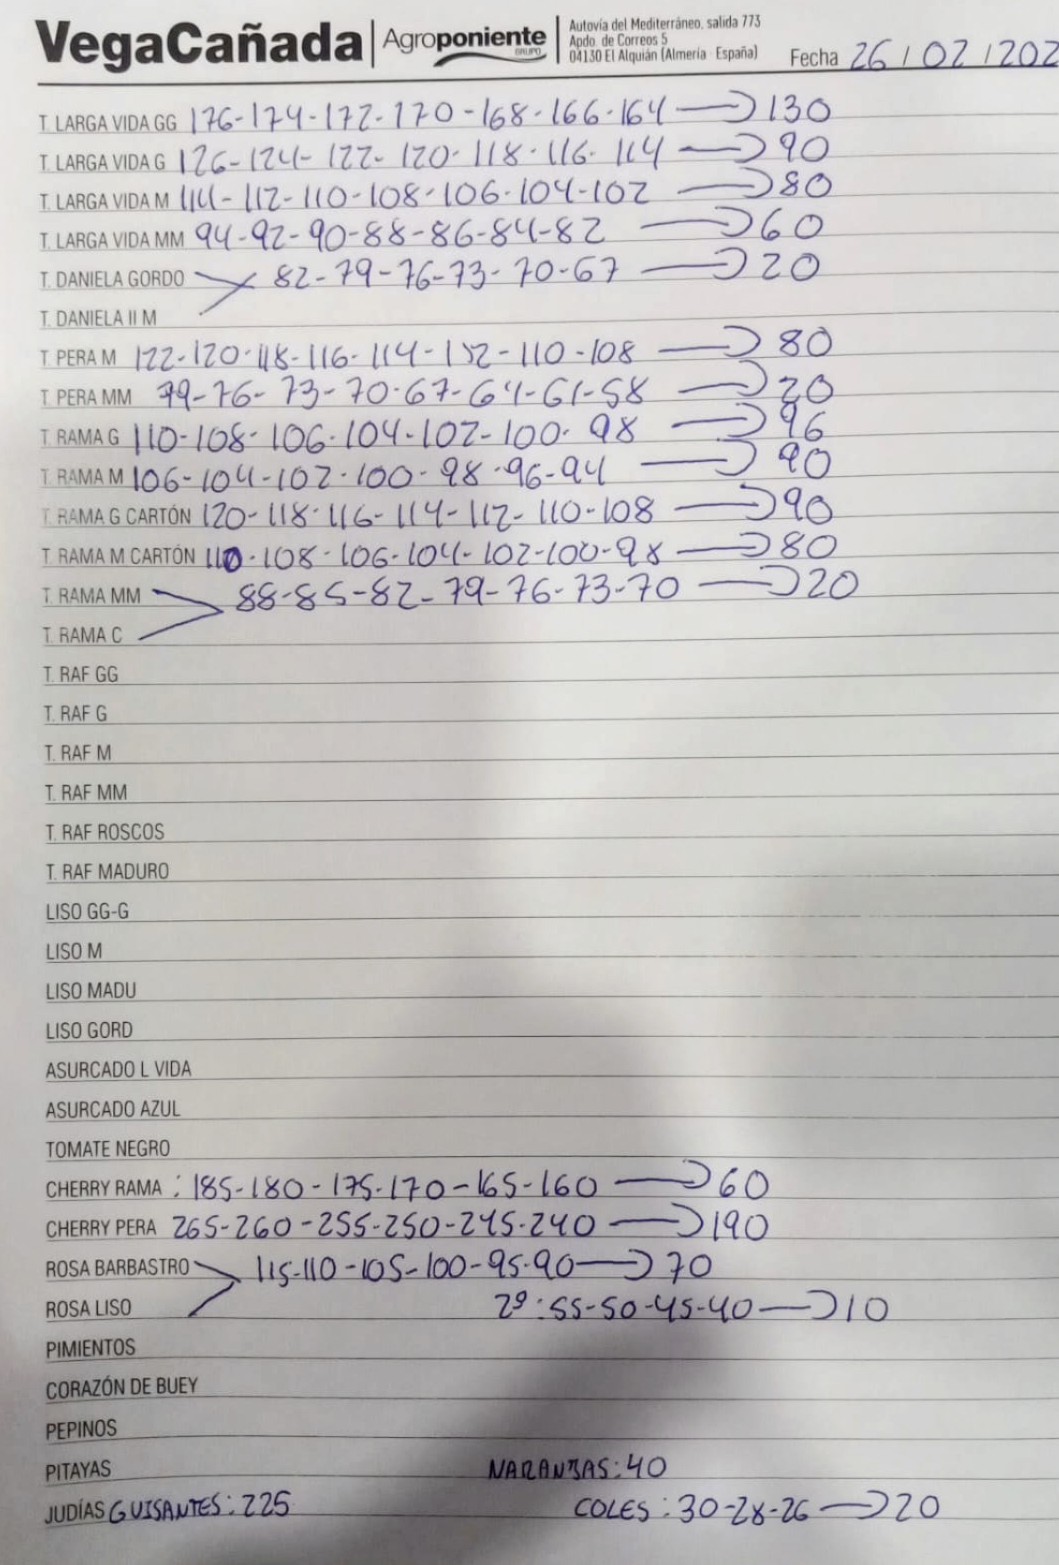 VegaCañada | Agroponiente GRUPO | Autovía del Mediterráneo, salida 773
Apdo. de Correos 5
04130 El Alquián (Almería España)
Fecha 26 / 02 / 202
T. LARGA VIDA GG 176-174-172-170-168-166-164 → 130
T. LARGA VIDA G 126-124-122-120-118-116-114 → 90
T. LARGA VIDA M 114-112-110-108-106-104-102 → 80
T. LARGA VIDA MM 94-92-90-88-86-84-82 → 60
T. DANIELA GORDO 82-79-76-73-70-67 → 20
T. DANIELA II M
T. PERA M 122-120-118-116-114-112-110-108 → 80
T. PERA MM 79-76-73-70-67-64-61-58 → 20
T. RAMA G 110-108-106-104-102-100-98 → 96
T. RAMA M 106-104-102-100-98-96-94 → 90
T. RAMA G CARTÓN 120-118-116-114-112-110-108 → 90
T. RAMA M CARTÓN 110-108-106-104-102-100-98 → 80
T. RAMA MM 88-85-82-79-76-73-70 → 20
T. RAMA C
T. RAF GG
T. RAF G
T. RAF M
T. RAF MM
T. RAF ROSCOS
T. RAF MADURO
LISO GG-G
LISO M
LISO MADU
LISO GORD
ASURCADO L VIDA
ASURCADO AZUL
TOMATE NEGRO
CHERRY RAMA : 185-180-175-170-165-160 → 60
CHERRY PERA 265-260-255-250-245-240 → 190
ROSA BARBASTRO 115-110-105-100-95-90 → 70
ROSA LISO 2º: 55-50-45-40 → 10
PIMIENTOS
CORAZÓN DE BUEY
PEPINOS
PITAYAS NARANJAS: 40
JUDÍAS GUISANTES: 225 COLES: 30-28-26 → 20